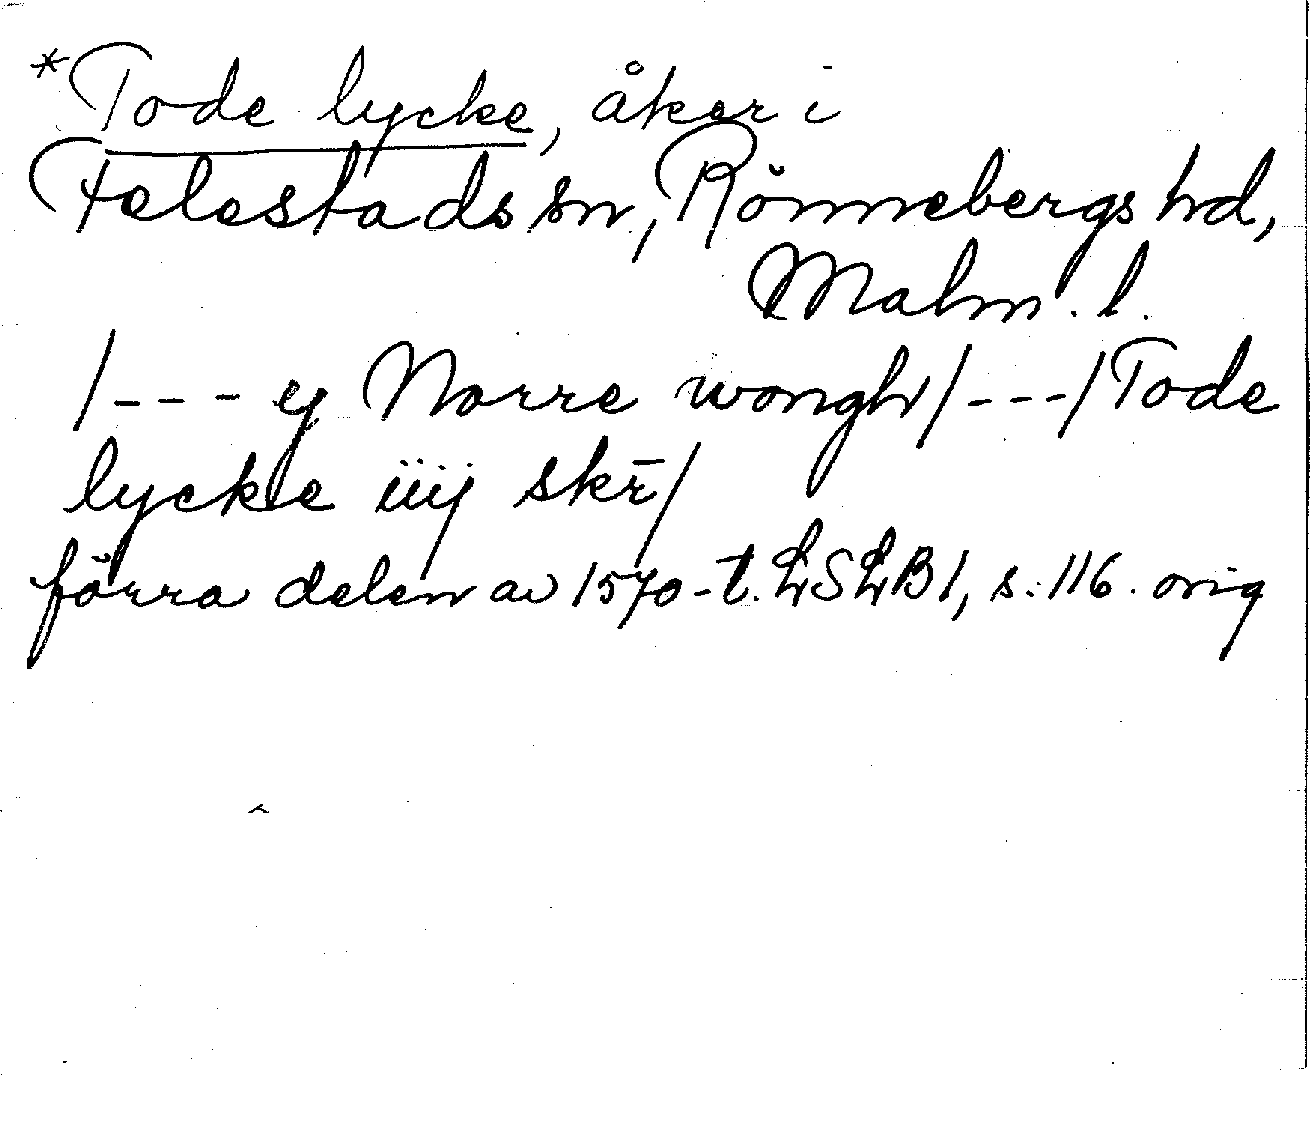 *Tode lycke, åker i
Felestads sn, Rönnebergs hd,
Malm. l.
/--- ej Norre wongh/---/Tode
lycke iiij skr̄/
förra delen av 1570-t. LSLB 1, s. 116. orig